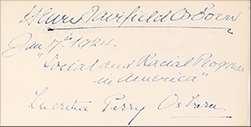 Henry Fairfield Osborn
Jan 7th 1924.
"Social and Racial Progress
in America"
Lucretia Perry Osborn